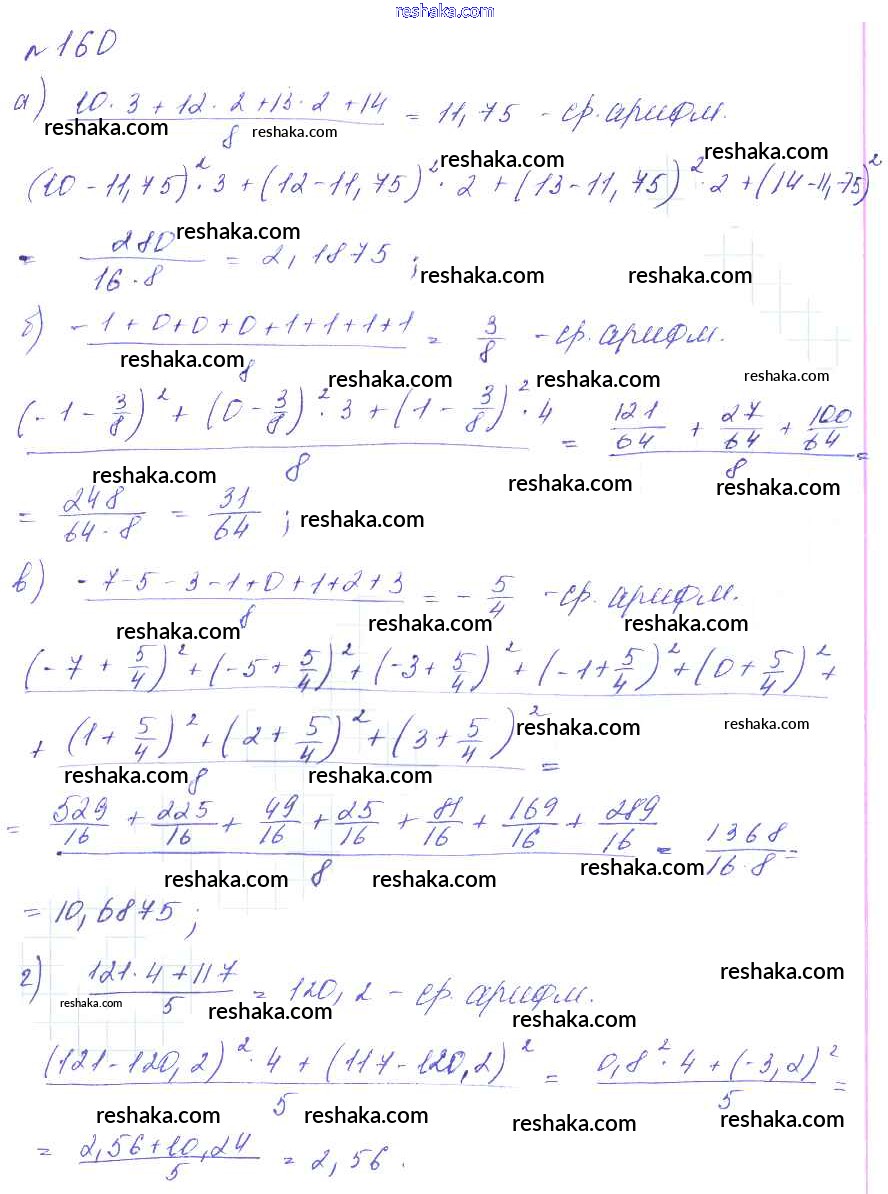 reshaka.com
№160
а) (10·3+12·2+13·2+14)/8 = 11,75 - ср. арифм.
reshaka.com reshaka.com
reshaka.com reshaka.com
(10-11,75)²·3+(12-11,75)²·2+(13-11,75)²·2+(14-11,75)²
reshaka.com
= 280/(16·8) = 2,1875;
reshaka.com reshaka.com
б) (-1+0+0+0+1+1+1+1)/8 = 3/8 - ср. арифм.
reshaka.com
reshaka.com reshaka.com reshaka.com
((-1-3/8)²+(0-3/8)²·3+(1-3/8)²·4)/8 = (121/64+27/64+100/64)/8 =
reshaka.com reshaka.com reshaka.com
= 248/(64·8) = 31/64; reshaka.com
в) (-7-5-3-1+0+1+2+3)/8 = -5/4 - ср. арифм.
reshaka.com reshaka.com reshaka.com
(-7+5/4)²+(-5+5/4)²+(-3+5/4)²+(-1+5/4)²+(0+5/4)²+
+(1+5/4)²+(2+5/4)²+(3+5/4)²/8 =
reshaka.com reshaka.com
reshaka.com reshaka.com
= (529/16+225/16+49/16+25/16+81/16+169/16+289/16)/8 = 1368/(16·8) =
reshaka.com reshaka.com reshaka.com
= 10,6875;
г) (121·4+117)/5 = 120,2 - ср. арифм.
reshaka.com
reshaka.com reshaka.com reshaka.com
((121-120,2)²·4+(117-120,2)²)/5 = (0,8²·4+(-3,2)²)/5 =
reshaka.com reshaka.com reshaka.com reshaka.com
= (2,56+10,24)/5 = 2,56.